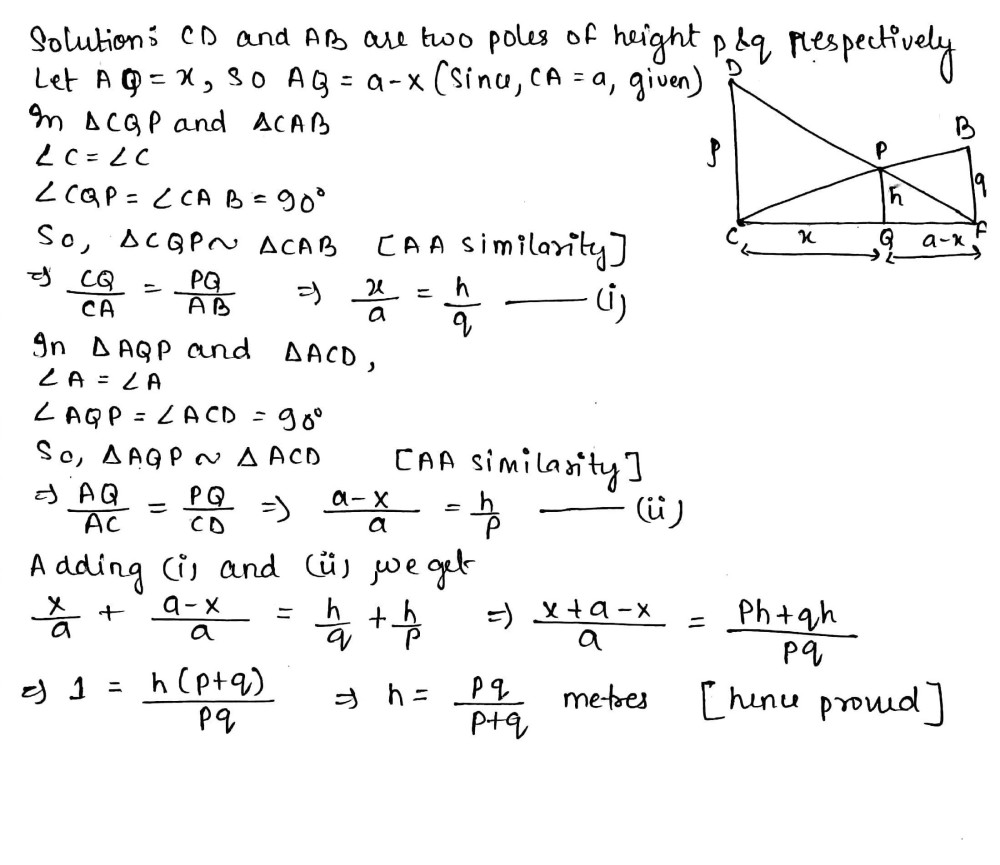 Solution: CD and AB are two poles of height p & q respectively
Let AQ = x, so AQ = a-x (Since, CA = a, given)
In ΔCQP and ΔCAB
∠C = ∠C
∠CQP = ∠CAB = 90°
So, ΔCQP ~ ΔCAB [AA similarity]
⇒ CQ/CA = PQ/AB ⇒ x/a = h/q ——— (i)
In ΔAQP and ΔACD,
∠A = ∠A
∠AQP = ∠ACD = 90°
So, ΔAQP ~ ΔACD [AA similarity]
⇒ AQ/AC = PQ/CD ⇒ a-x/a = h/p ——— (ii)
Adding (i) and (ii) we get
x/a + a-x/a = h/q + h/p ⇒ x+a-x/a = Ph+qh/pq
⇒ 1 = h(p+q)/pq ⇒ h = pq/p+q metres [hence proved]
D
B
P
p
h
q
C
x
Q
a-x
A